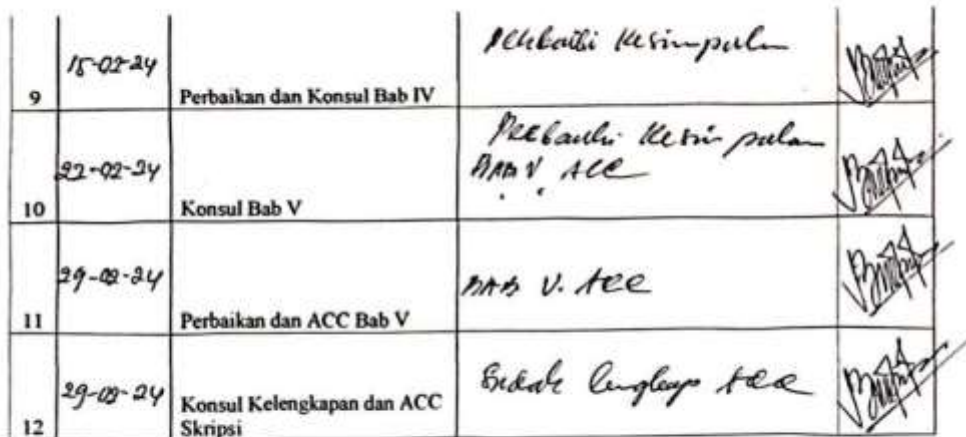 9 15-02-24 Perbaikan dan Konsul Bab IV Perbaiki Kesimpulan
10 22-02-24 Konsul Bab V Perbaiki Kesimpulan
BAB V ACC
11 29-02-24 Perbaikan dan ACC Bab V BAB V. ACC
12 29-02-24 Konsul Kelengkapan dan ACC Sudah lengkap ACC
Skripsi